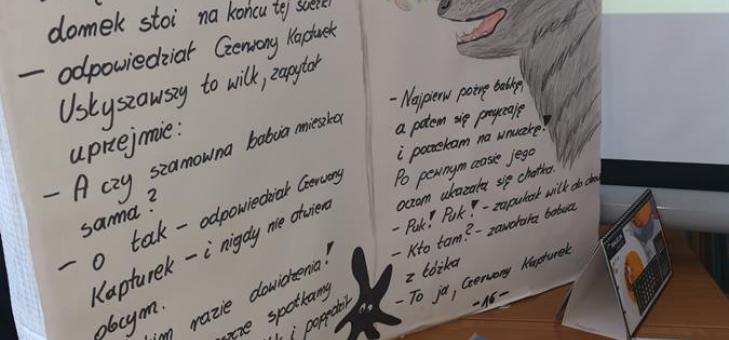 domek stoi na końcu tej
— odpowiedział Czerwony Kapturek
Usłyszawszy to wilk, zapytał
uprzejmie:
— A czy szanowna babcia mieszka
sama?
— O tak — odpowiedział Czerwony
Kapturek — i nigdy nie otwiera
obcym.
razie dowidzenia!
spotkamy
i popędził
- Najpierw pożrę babkę,
a potem się przyczaję
i poczekam na wnuczkę!
Po pewnym czasie jego
oczom ukazała się chatka.
- Puk! Puk! - zapukał wilk do
- Kto tam? - zawołała babcia
z łóżka
- To ja, Czerwony Kapturek
-16-